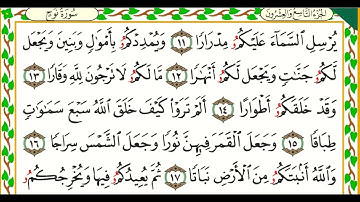 الجزء التاسع والعشرون
سورة نوح
يُرْسِلِ ٱلسَّمَآءَ عَلَيْكُم مِّدْرَارًا ١١ وَيُمْدِدْكُم بِأَمْوَٰلٍ وَبَنِينَ وَيَجْعَل
لَّكُمْ جَنَّٰتٍ وَيَجْعَل لَّكُمْ أَنْهَٰرًا ١٢ مَّا لَكُمْ لَا تَرْجُونَ لِلَّهِ وَقَارًا ١٣
وَقَدْ خَلَقَكُمْ أَطْوَارًا ١٤ أَلَمْ تَرَوْا۟ كَيْفَ خَلَقَ ٱللَّهُ سَبْعَ سَمَٰوَٰتٍ
طِبَاقًا ١٥ وَجَعَلَ ٱلْقَمَرَ فِيهِنَّ نُورًا وَجَعَلَ ٱلشَّمْسَ سِرَاجًا ١٦
وَٱللَّهُ أَنۢبَتَكُم مِّنَ ٱلْأَرْضِ نَبَاتًا ١٧ ثُمَّ يُعِيدُكُمْ فِيهَا وَيُخْرِجُكُمْ